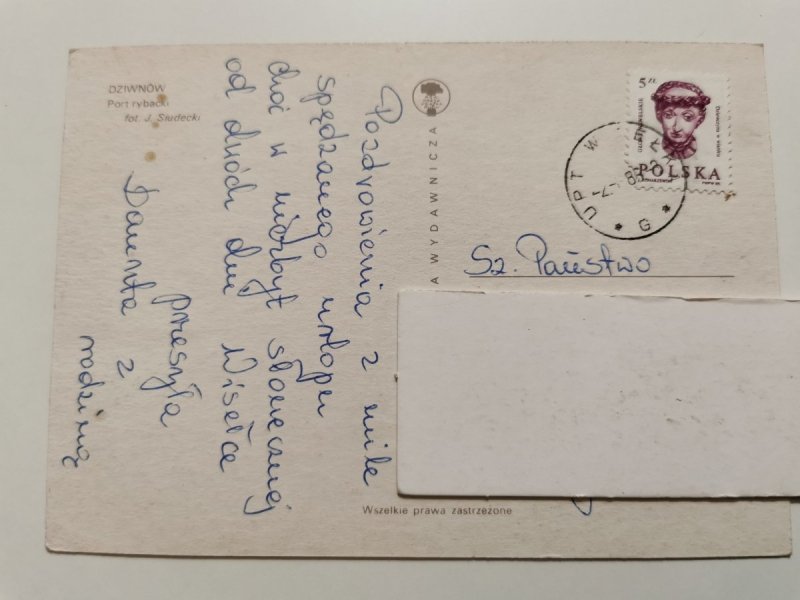 DZIWNÓW
Port rybacki
fot. J. Siudecki
Pozdrowienia z mile
spędzanego urlopu
choć w niezbyt słonecznej
od dwóch dni Wisełce
przesyła
Danuta z
rodziną
A WYDAWNICZA
Wszelkie prawa zastrzeżone
5 ZŁ
POLSKA
UPT W
G
Sz. Państwo